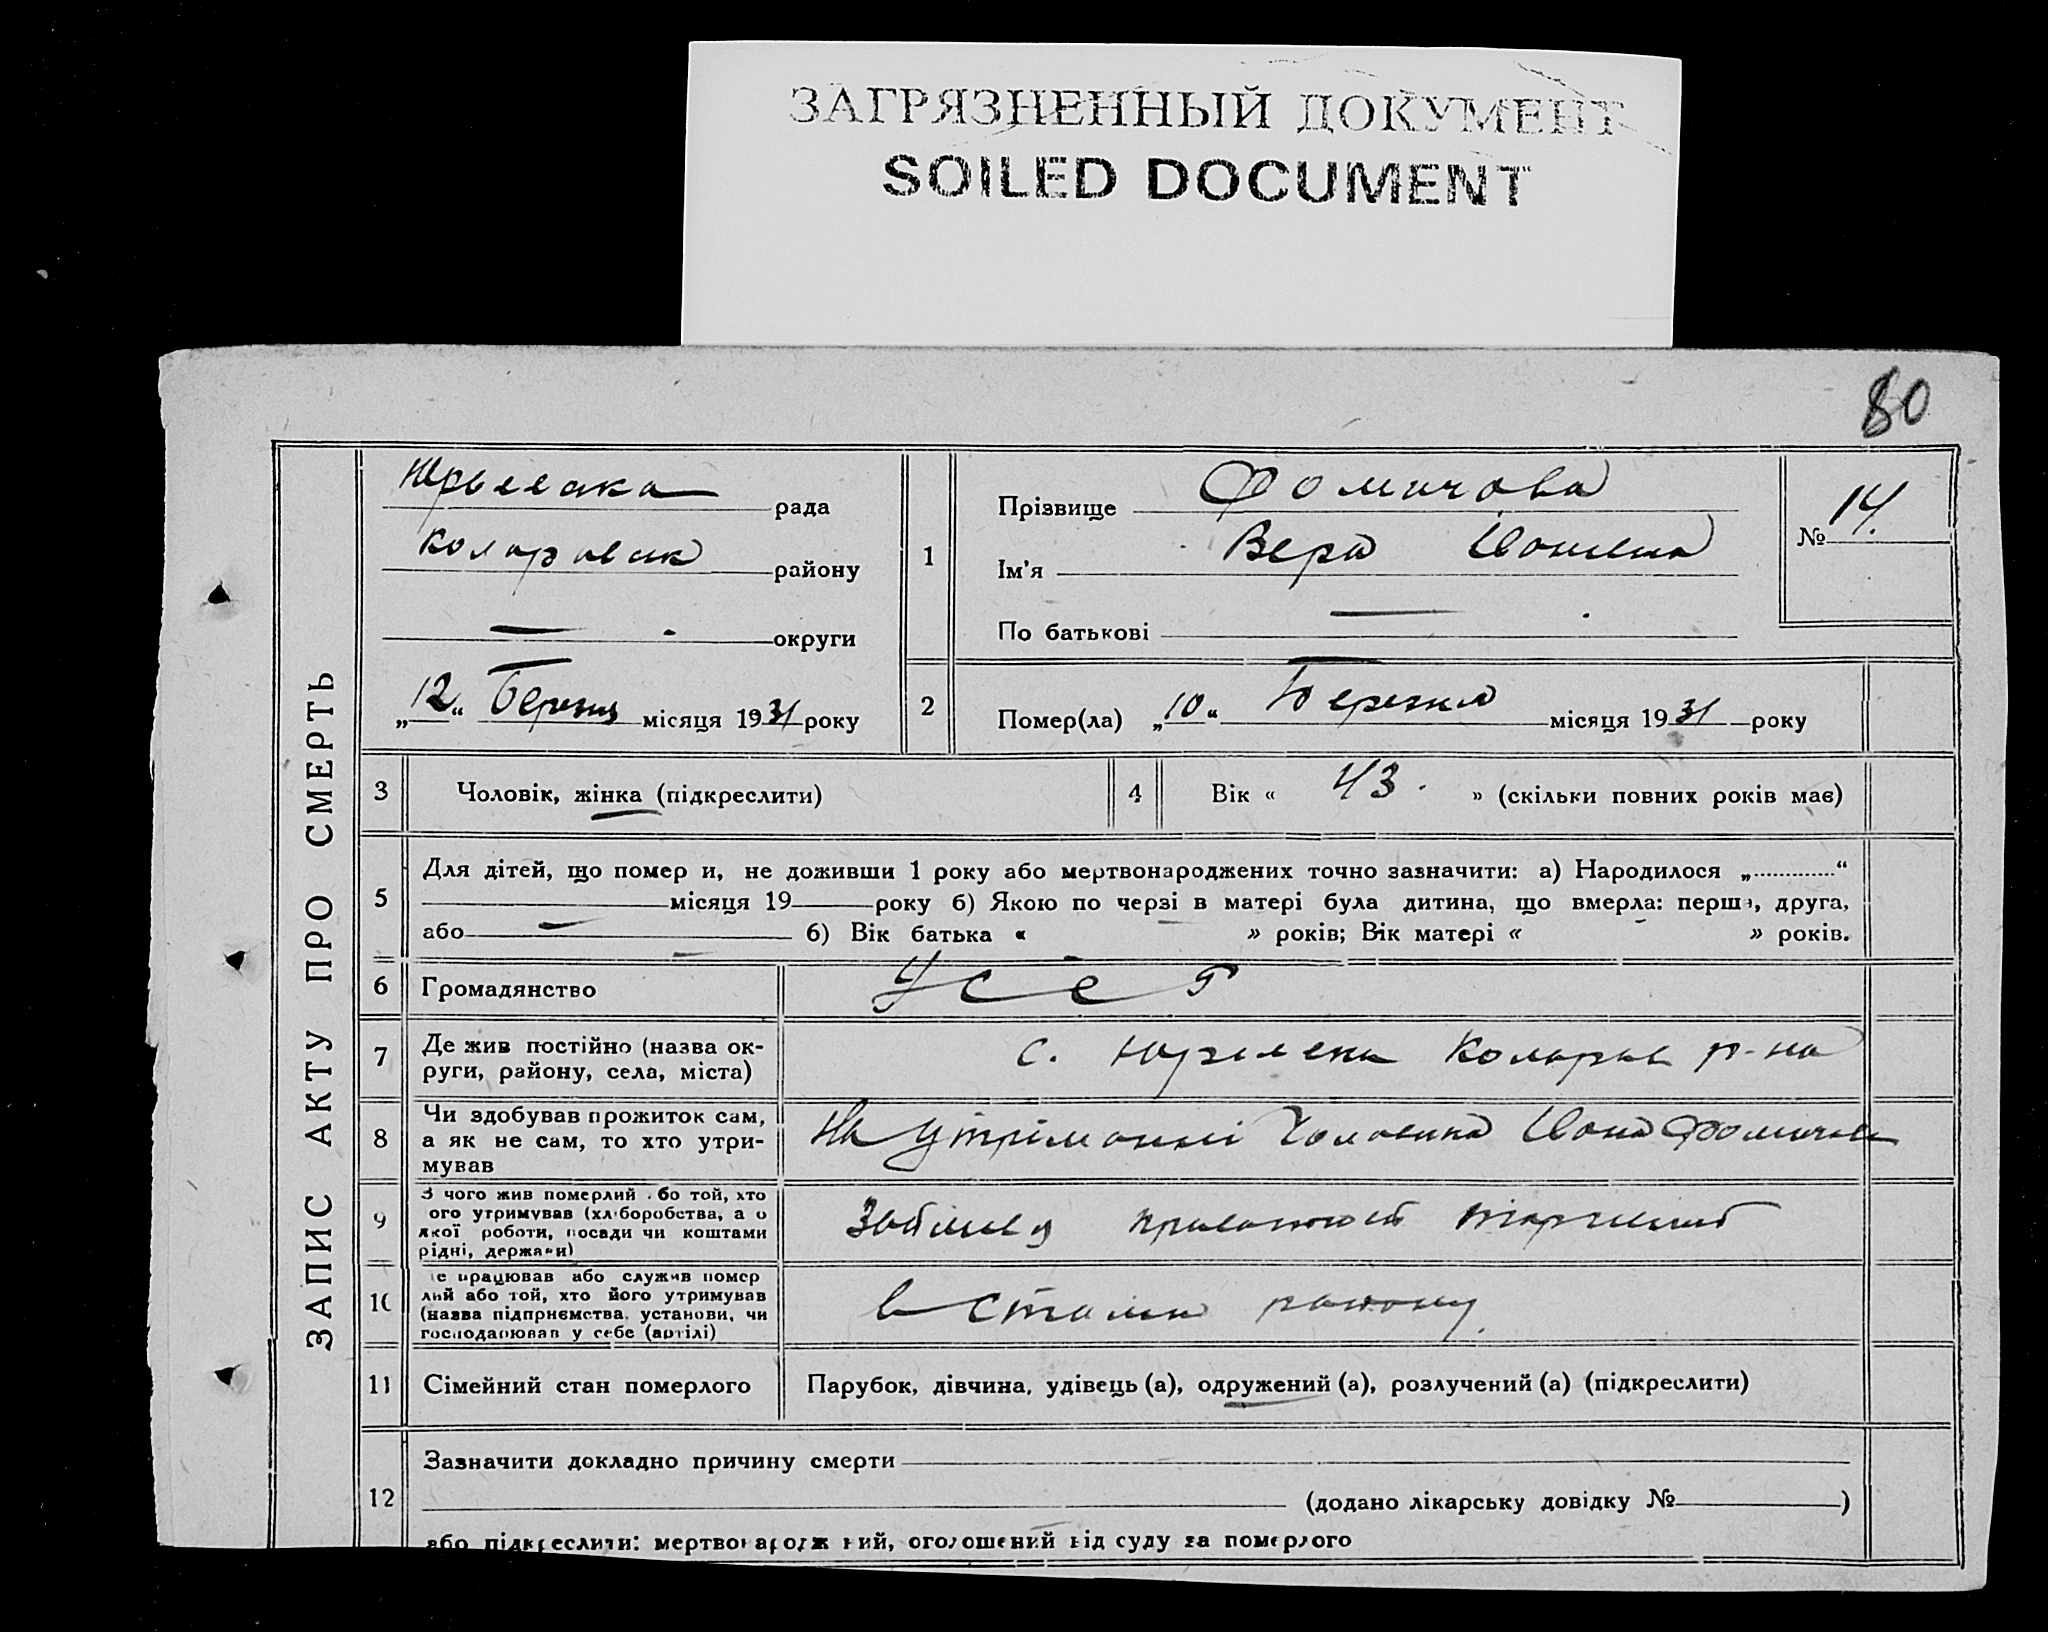 ЗАГРЯЗНЕННЫЙ ДОКУМЕНТ
SOILED DOCUMENT
80
ЗАПИС АКТУ ПРО СМЕРТЬ
рада
району
— округи
„12“ Березня місяця 1931 року
1
Прізвище Фомичова
Ім'я Вера
По батькові —
№ 14.
2
Помер(ла) „10“ Березня місяця 1931 року
3 Чоловік, жінка (підкреслити)
4 Вік « 43. » (скільки повних років має)
5
Для дітей, що помер и, не доживши 1 року або мертвонароджених точно зазначити: а) Народилося „ “
місяця 19 року б) Якою по черзі в матері була дитина, що вмерла: перша, друга,
або — б) Вік батька « » років; Вік матері « » років.
6 Громадянство УСЕР
7
Де жив постійно (назва ок-
руги, району, села, міста)
с. Коларов р-на
8
Чи здобував прожиток сам,
а як не сам, то хто утри-
мував
На утріманні Чоловика Фомичов
9
З чого жив померлий або той, хто
ого утримував (хліборобства, а о
якої роботи, посади чи коштами
рідні, держави)
10
е працював або служив помер
лий або той, хто його утримував
(назва підприємства, установи, чи
господарював у себе (артілі)
в району.
11 Сімейний стан померлого
Парубок, дівчина, удівець (а), одружений (а), розлучений (а) (підкреслити)
12
Зазначити докладно причину смерти
(додано лікарську довідку № )
або підкреслити: мертвонароджений, оголошений від суду за померлого